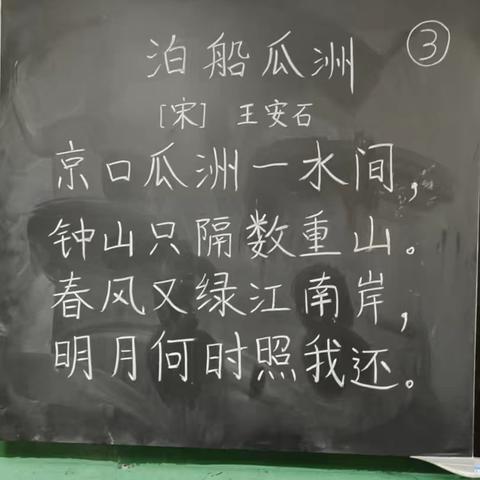 ③
泊船瓜洲
［宋］ 王安石
京口瓜洲一水间，
钟山只隔数重山。
春风又绿江南岸，
明月何时照我还。